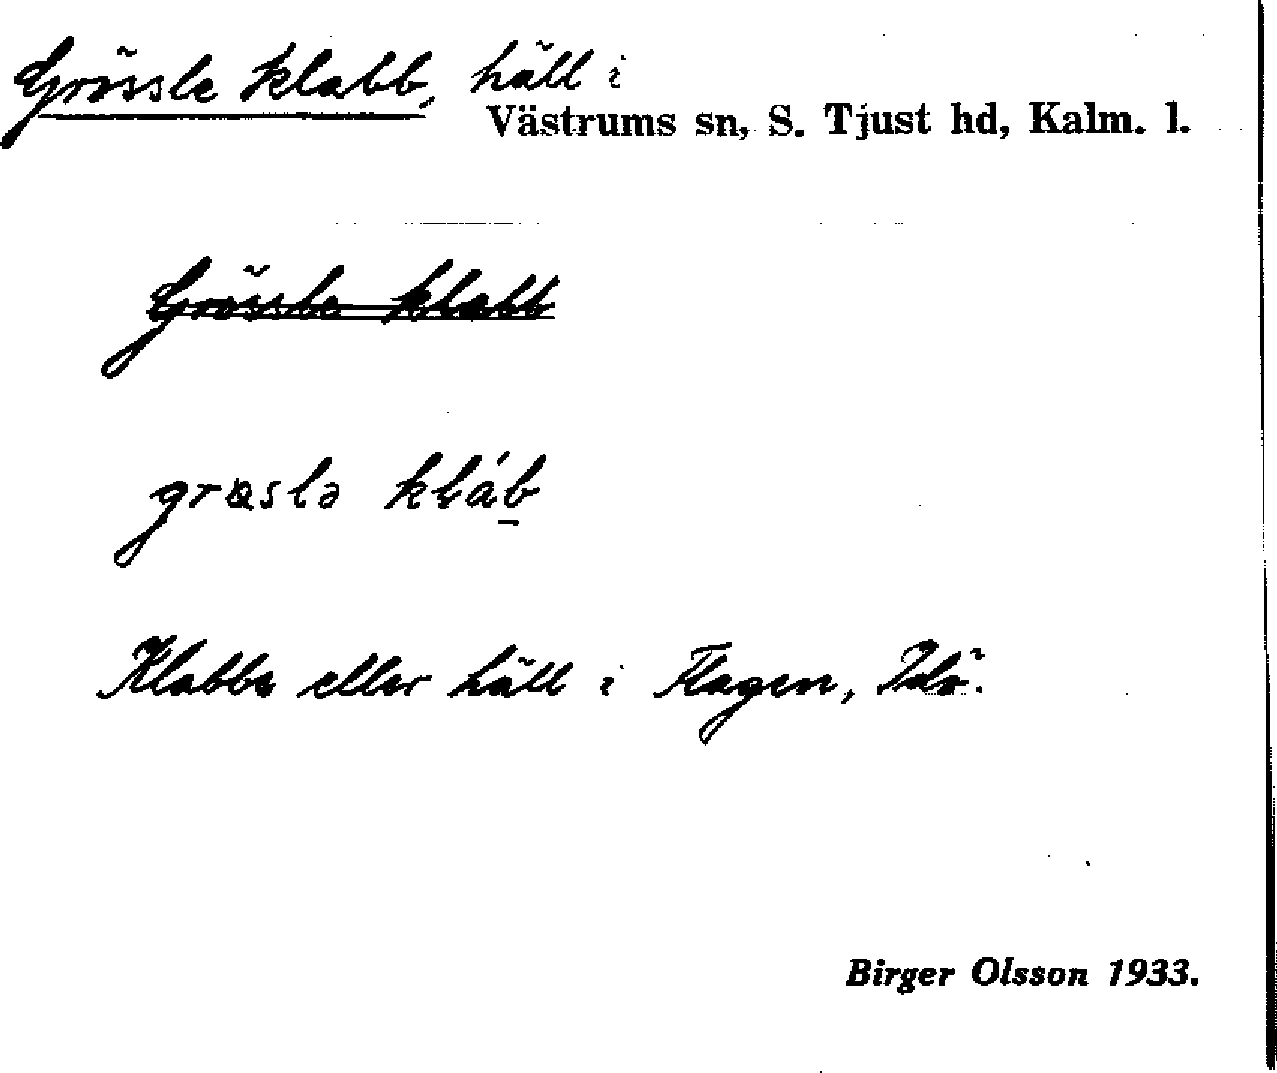 Grössle klabb, häll i
Västrums sn, S. Tjust hd, Kalm. l.
Grössle klabb
grɷslə kláb̲
Klabbe eller häll i Flagen, Idö.
Birger Olsson 1933.